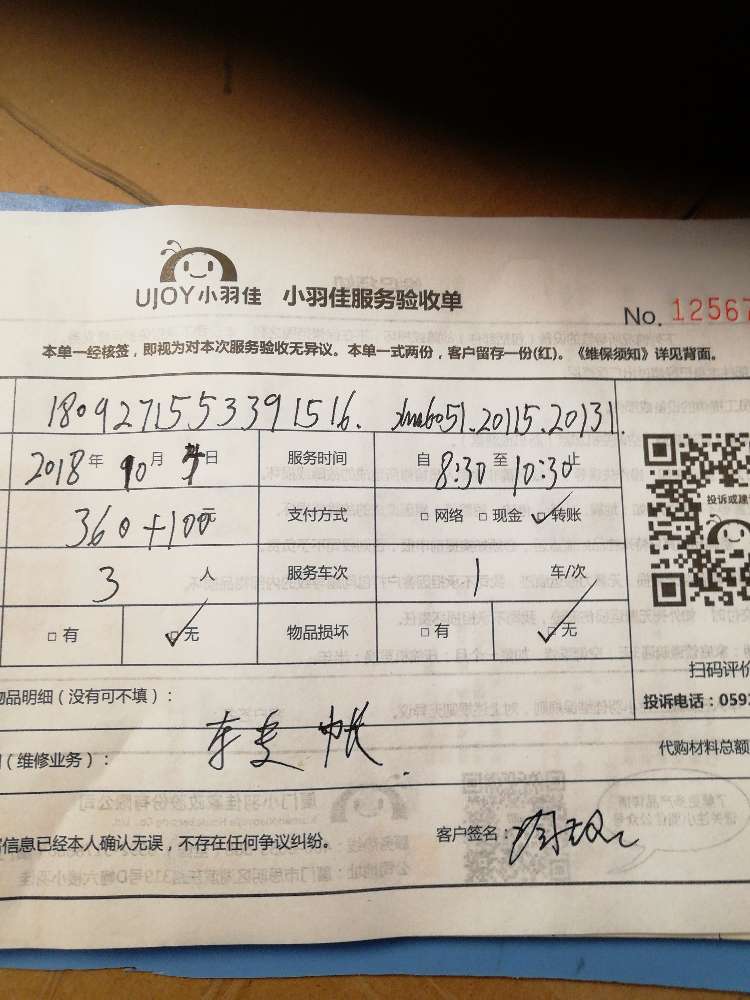 UJOY小羽佳 小羽佳服务验收单
No. 12567
本单一经核签，即视为对本次服务验收无异议。本单一式两份，客户留存一份(红)。《维保须知》详见背面。
1809271553391516.
2018年10月 日 服务时间 自8:30至10:30止
360+100元 支付方式 □网络 □现金 □转账
3人 服务车次 1车/次
□有 □无 物品损坏 □有 □无
投诉或建
扫码评价
物品明细（没有可不填）：
投诉电话：0592
（维修业务）：
代购材料总额
信息已经本人确认无误，不存在任何争议纠纷。
客户签名：